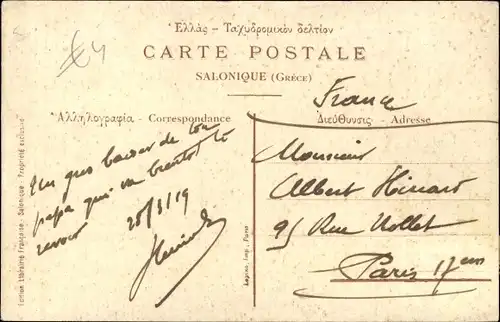 Ἑλλὰς – Ταχυδρομικὸν δελτίον
CARTE POSTALE
SALONIQUE (GRÈCE)
France
Ἀλληλογραφία - Correspondance
Διεύθυνσις - Adresse
Un gros baiser de ton
papa qui va bientôt te
revoir
25/3/19
Monsieur
Albert
95 Rue Nollet
Paris 17em
Edition Librairie Française - Salonique - Propriété exclusive
Imp., Paris